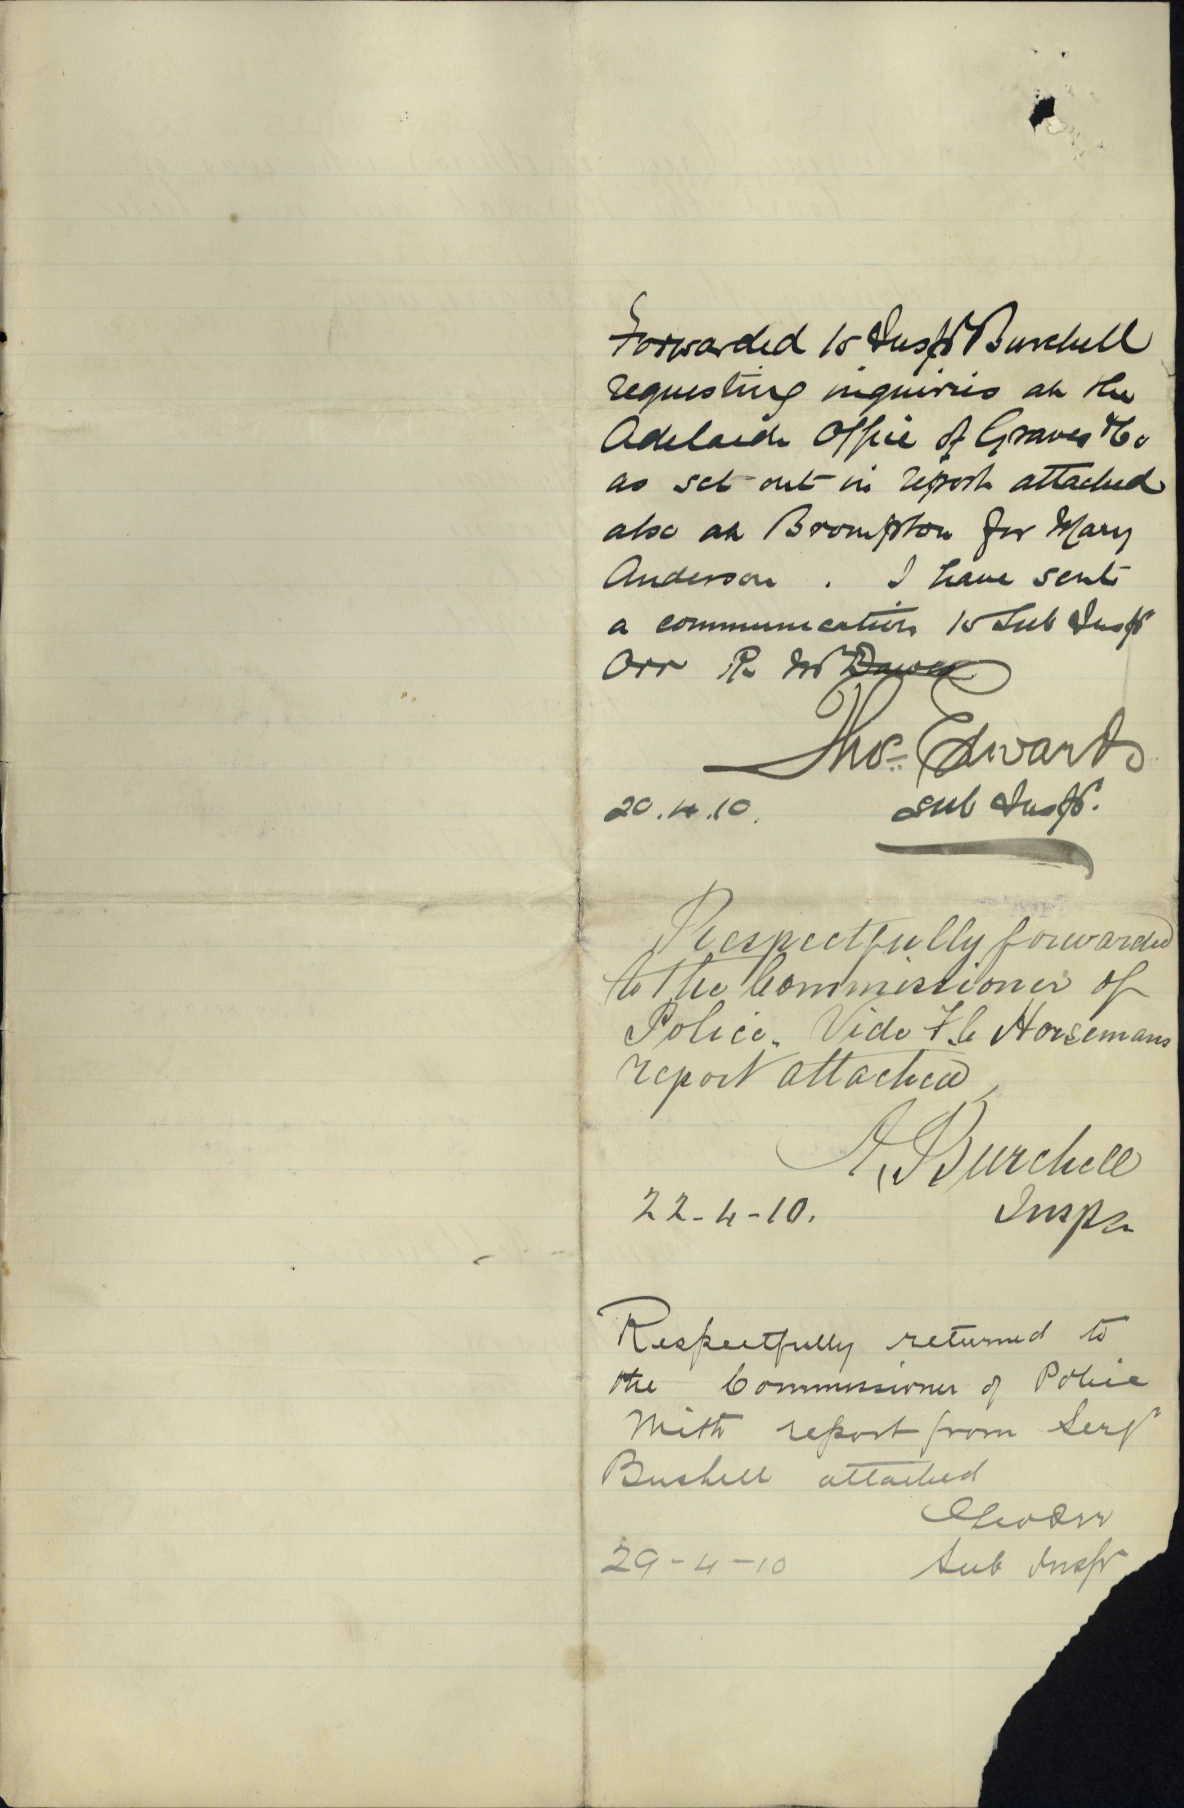 Forwarded to Inspr Burchell
requesting inquiries at the
Adelaide Office of Graves & Co
as set out in report attached
also at Brompton for Mary
Anderson . I have sent
a communication to Sub Inspr
Orr Re
Thos. Edwards
20.4.10. Sub Inspr.
Respectfully forwarded
to the Commissioner of
Police. Vide F.C. Horsemans
report attached,
A. Burchell
22-4-10. Inspr
Respectfully returned to
the Commissioner of Police
With report from Sergt
Bushell attached
Orr
29-4-10 Sub Inspr